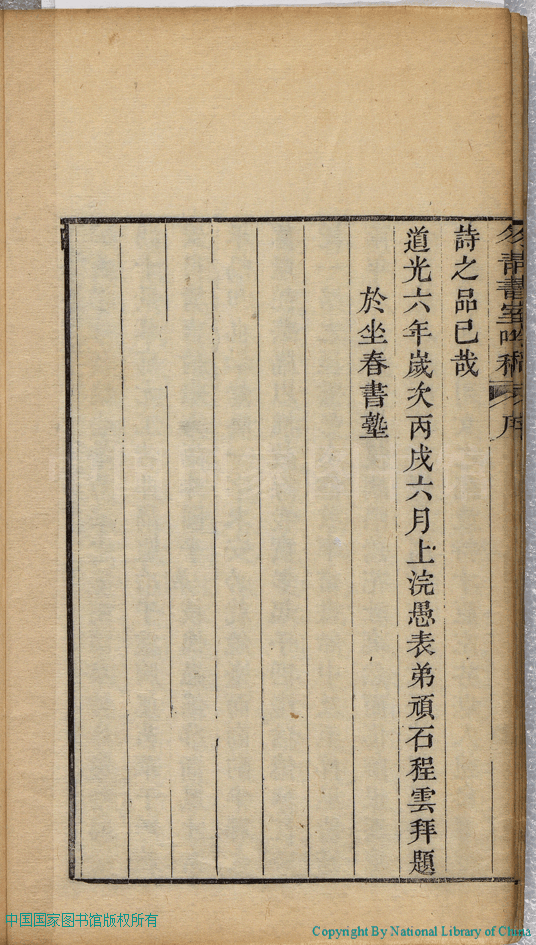 詩之品已哉
道光六年歲次丙戌六月上浣愚表弟頑石程雲拜題
於坐春書塾
序
中国国家图书馆版权所有
Copyright By National Library of China